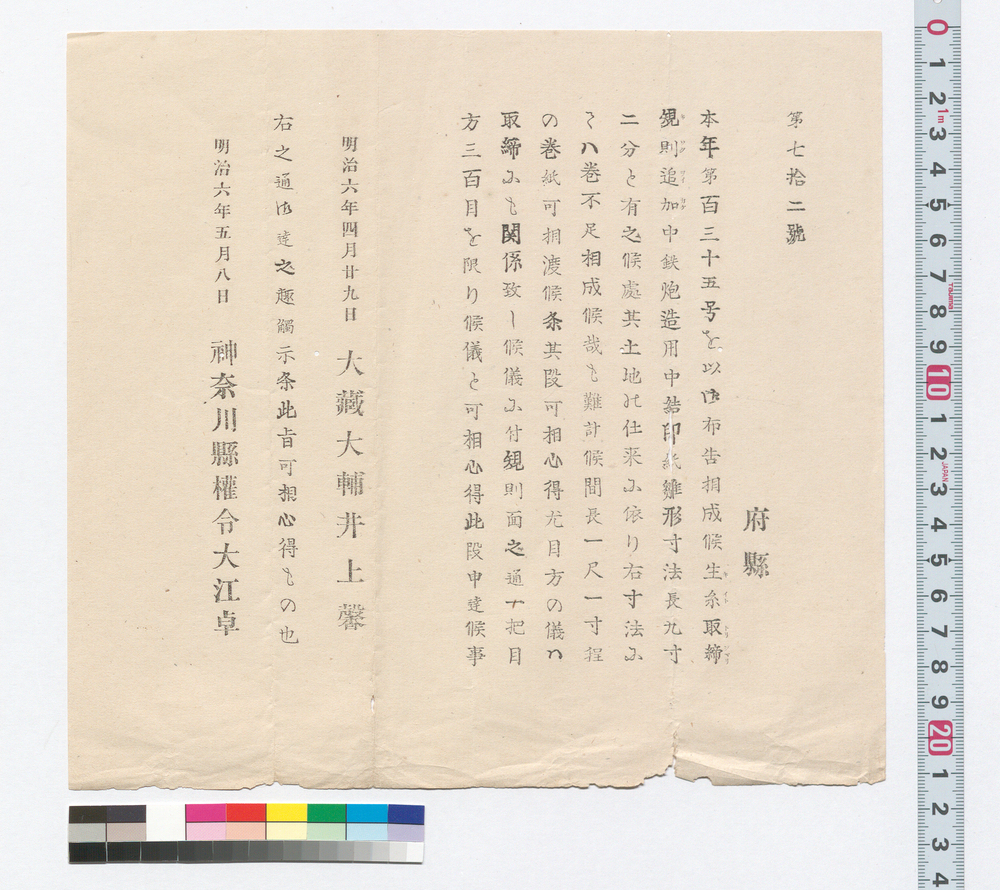 第七拾二號
府縣
本年第百三十五号を以御布告相成候生糸取締
規則追加中鉄炮造用中結印紙雛形寸法長九寸
二分と有之候處其土地の仕来に依り右寸法に
てハ巻不足相成候哉も難計候間長一尺一寸程
の巻紙可相渡候条其段可相心得尤目方の儀ハ
取締にも関係致し候儀に付規則面之通十把目
方三百目を限り候儀と可相心得此段申達候事
明治六年四月廿九日 大藏大輔井上馨
右之通御達之趣觸示条此旨可相心得もの也
明治六年五月八日 神奈川縣權令大江卓
0 1 2 3 4 5 6 7 8 9 10 1 2 3 4 5 6 7 8 9 20 1 2 3 4
1m
Tajima
JAPAN